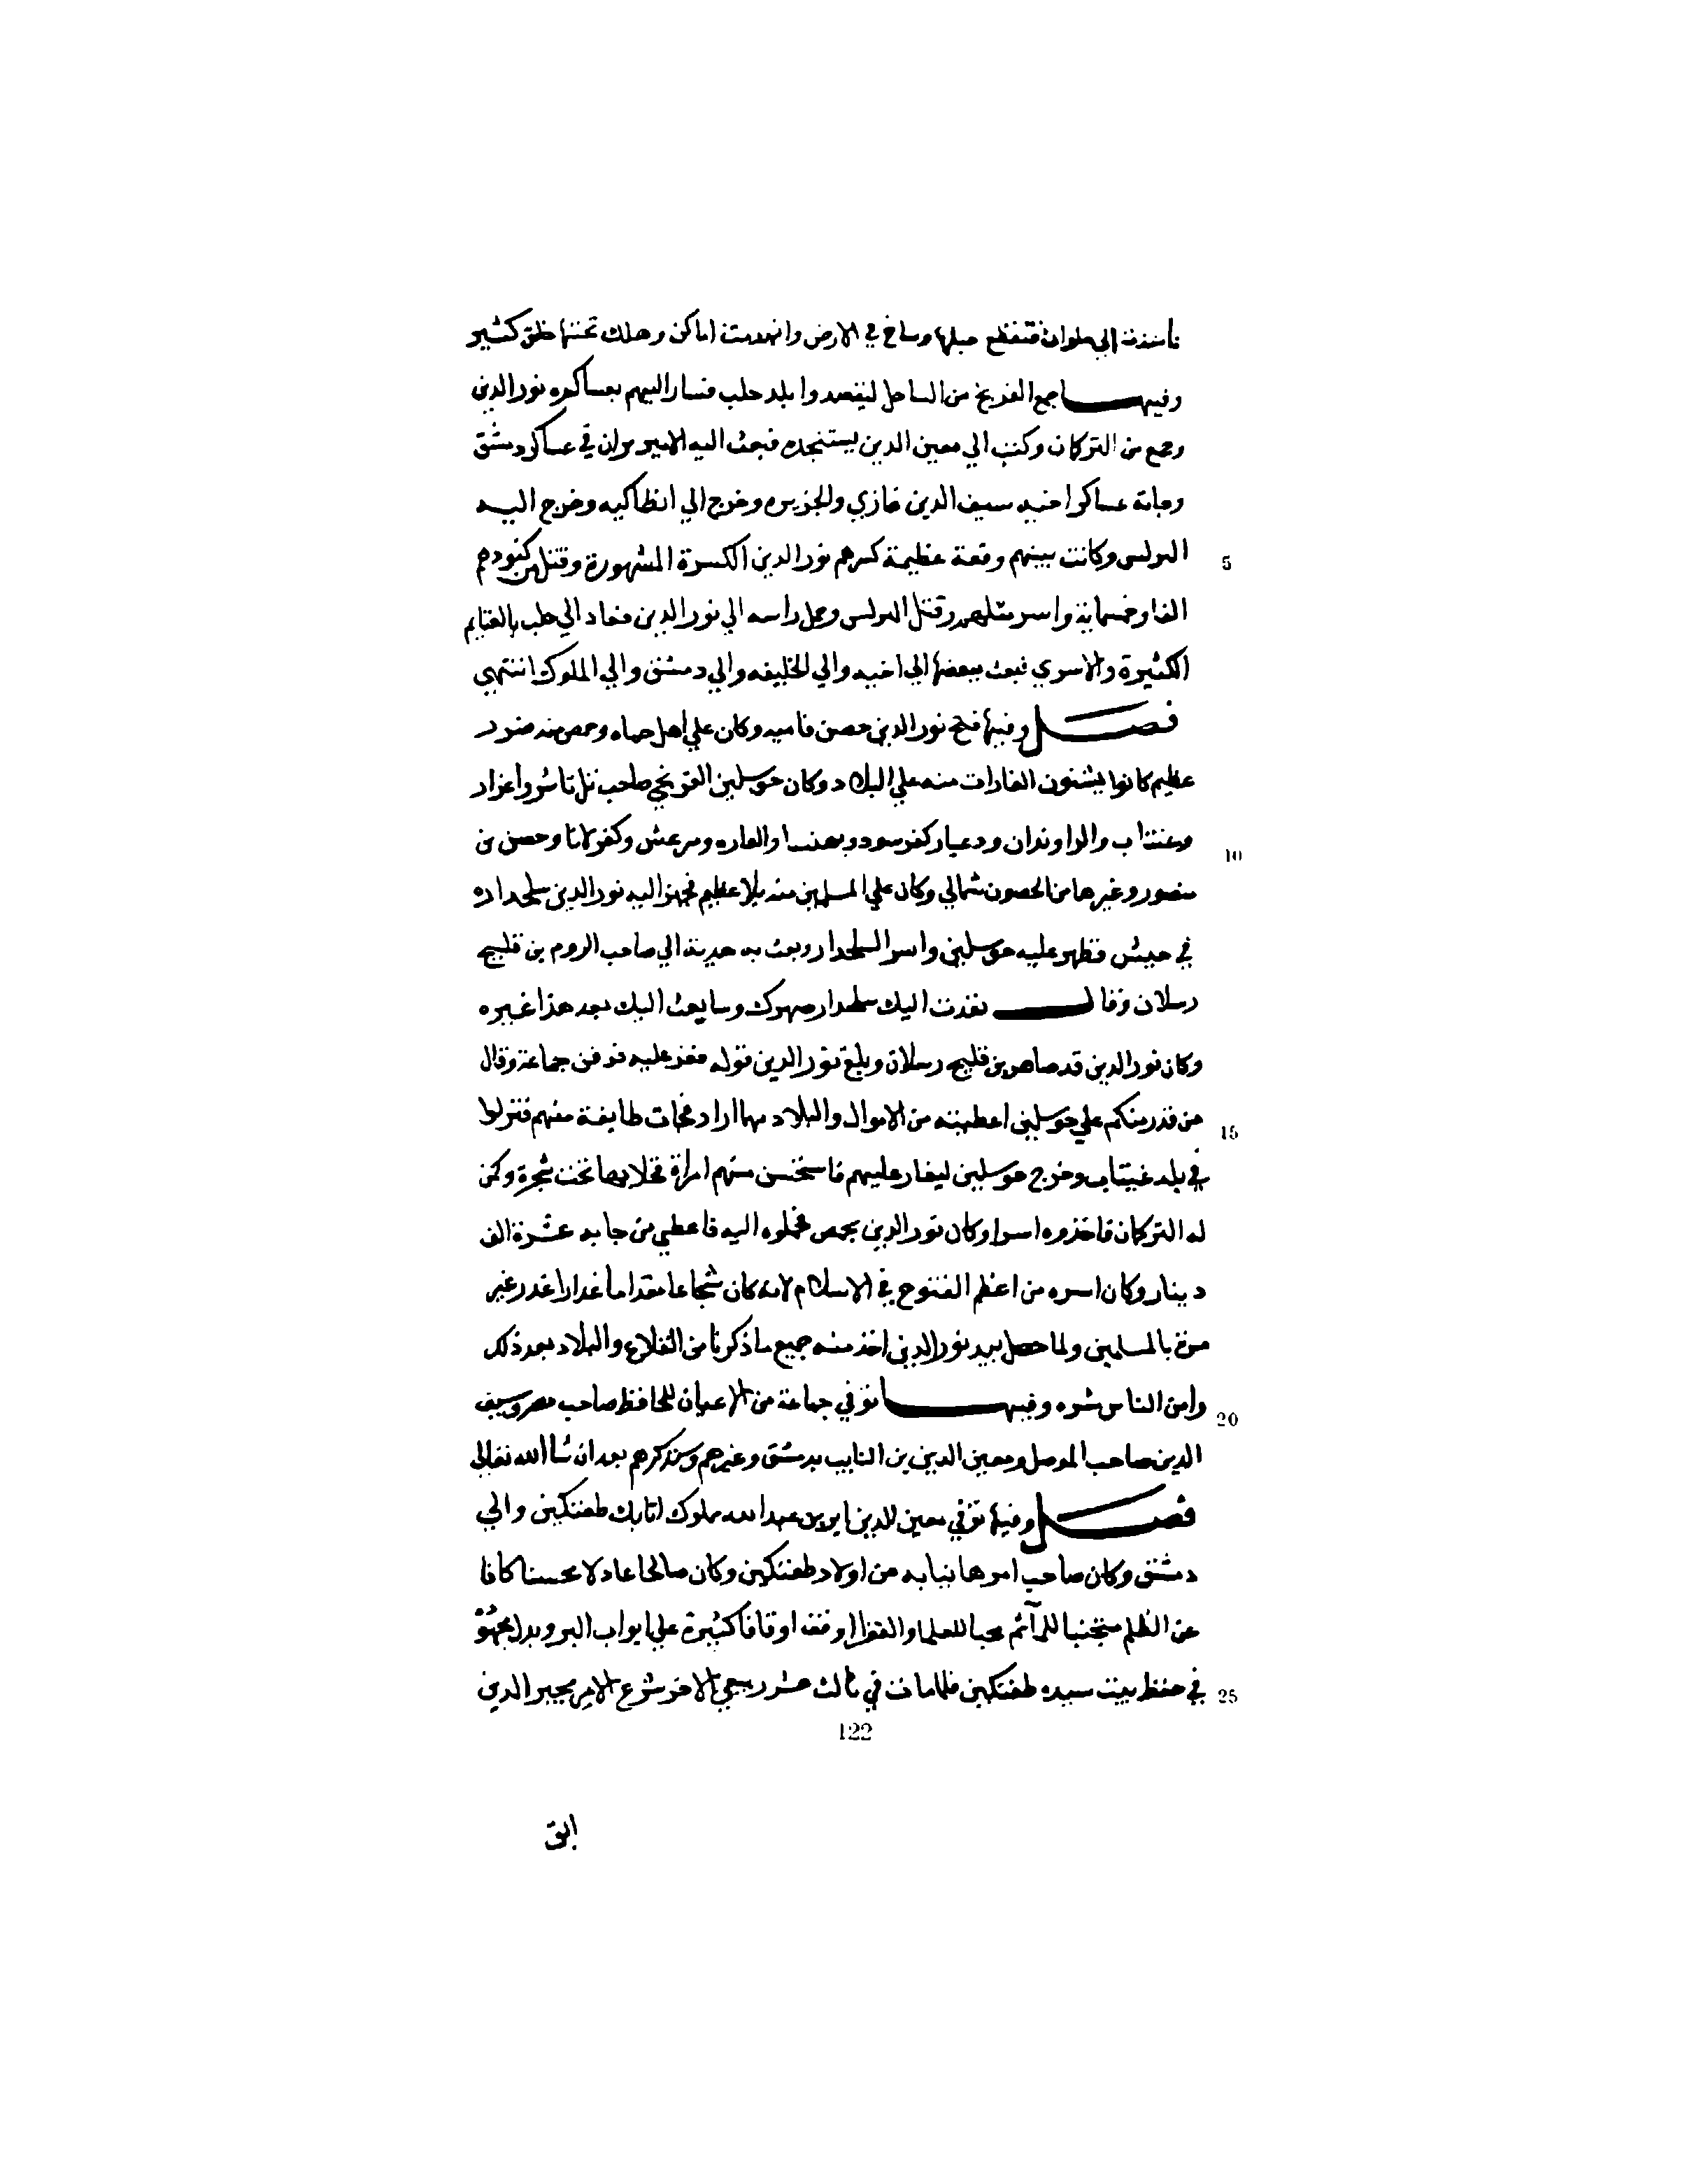 فاخذت الي حلوان فتقطع جبلها وساخ في الارض وانهدمت اماكن وهلك تحتها خلق كثير
وفيها جمع الفرنج من الساحل ليقصدوا بلد حلب فسار اليهم بعساكره نور الدين
وجمع من التركمان وكتب الي معين الدين يستنجده فبعث اليه الامير بوزان في عساكر دمشق
وجاته عساكر اخيه سيف الدين غازي والجزيره وخرج الي انطاكيه وخرج اليه
البرلس وكانت بينهم وقعة عظيمة كسرهم نور الدين الكسرة المشهورة وقتل من كنودهم
الفا وخمسماية واسر مثلهم وقتل البرلس وحمل راسه الي نور الدين فعاد الي حلب بالغنايم
الكثيرة والاسري فبعث ببعضها الي اخيه والي الخليفه والي دمشق والي الملوك انتهي
فصل وفيها فتح نور الدين حصن فاميه وكان علي اهل حماه وحمص منه ضرر
عظيم كانوا يشنون الغارات منه علي البلاد وكان جوسلين الفرنجي صاحب تل باشر واعزاز
وعنتاب والراوندان و كفرسود وبهنسا و ومرعش وكفر لاثا وحصن بن
منصور وغيرها من الحصون شمالي وكان علي المسلمين منه بلا عظيم فجهز اليه نور الدين سلحداره
في جيش فظهر عليه جوسلين واسر السلحدار وبعث به هدية الي صاحب الروم بن قليج
رسلان وقال نفذت اليك سلحدار صهرك وسابعث اليك بعد هذا غيره
وكان نور الدين قد صاهر بن قليج رسلان وبلغ نور الدين قوله فعز عليه جماعة وقال
من قدر منكم علي جوسلين اعطيته من الاموال والبلاد مهما اراد فجات طايفة منهم فنزلوا
في بلد عينتاب وخرج جوسلين ليغار عليهم فاستحسن منهم امراة فخلا بها تحت شجرة وكمن
له التركمان فاخذوه اسرا وكان نور الدين بحمص فحملوه اليه فاعطي من جا به عشرة الف
دينار وكان اسره من اعظم الفتوح في الاسلام لانه كان شجاعا مقداما غدارا غدر غير
مرة بالمسلمين ولما حصل بيد نور الدين اخذ منه جميع ما ذكرنا من القلاع والبلاد بعد ذلك
وامن الناس شره وفيها توفي جماعة من الاعيان الحافظ صاحب مصر وسيف
الدين صاحب الموصل ومعين الدين بن النايب بدمشق وغيرهم وسنذكرهم بعد ان شا الله تعالي
فصل وفيها توفي معين الدين بن عبد الله مملوك اتابك طغتكين والي
دمشق وكان صاحب امرها نيابه من اولاد طغتكين وكان صالحا عادلا محسنا كافا
عن الظلم متجنبا للمآثم محبا للعلما والفقرا اوقف اوقافا كثيرة علي ابواب البر وبذل مجهو
في حفظ بيت سيده طغتكين فلما مات في ثالث عشر ربيع الاخر شرع الامير مجير الدين
5
10
15
20
25
122
ابق